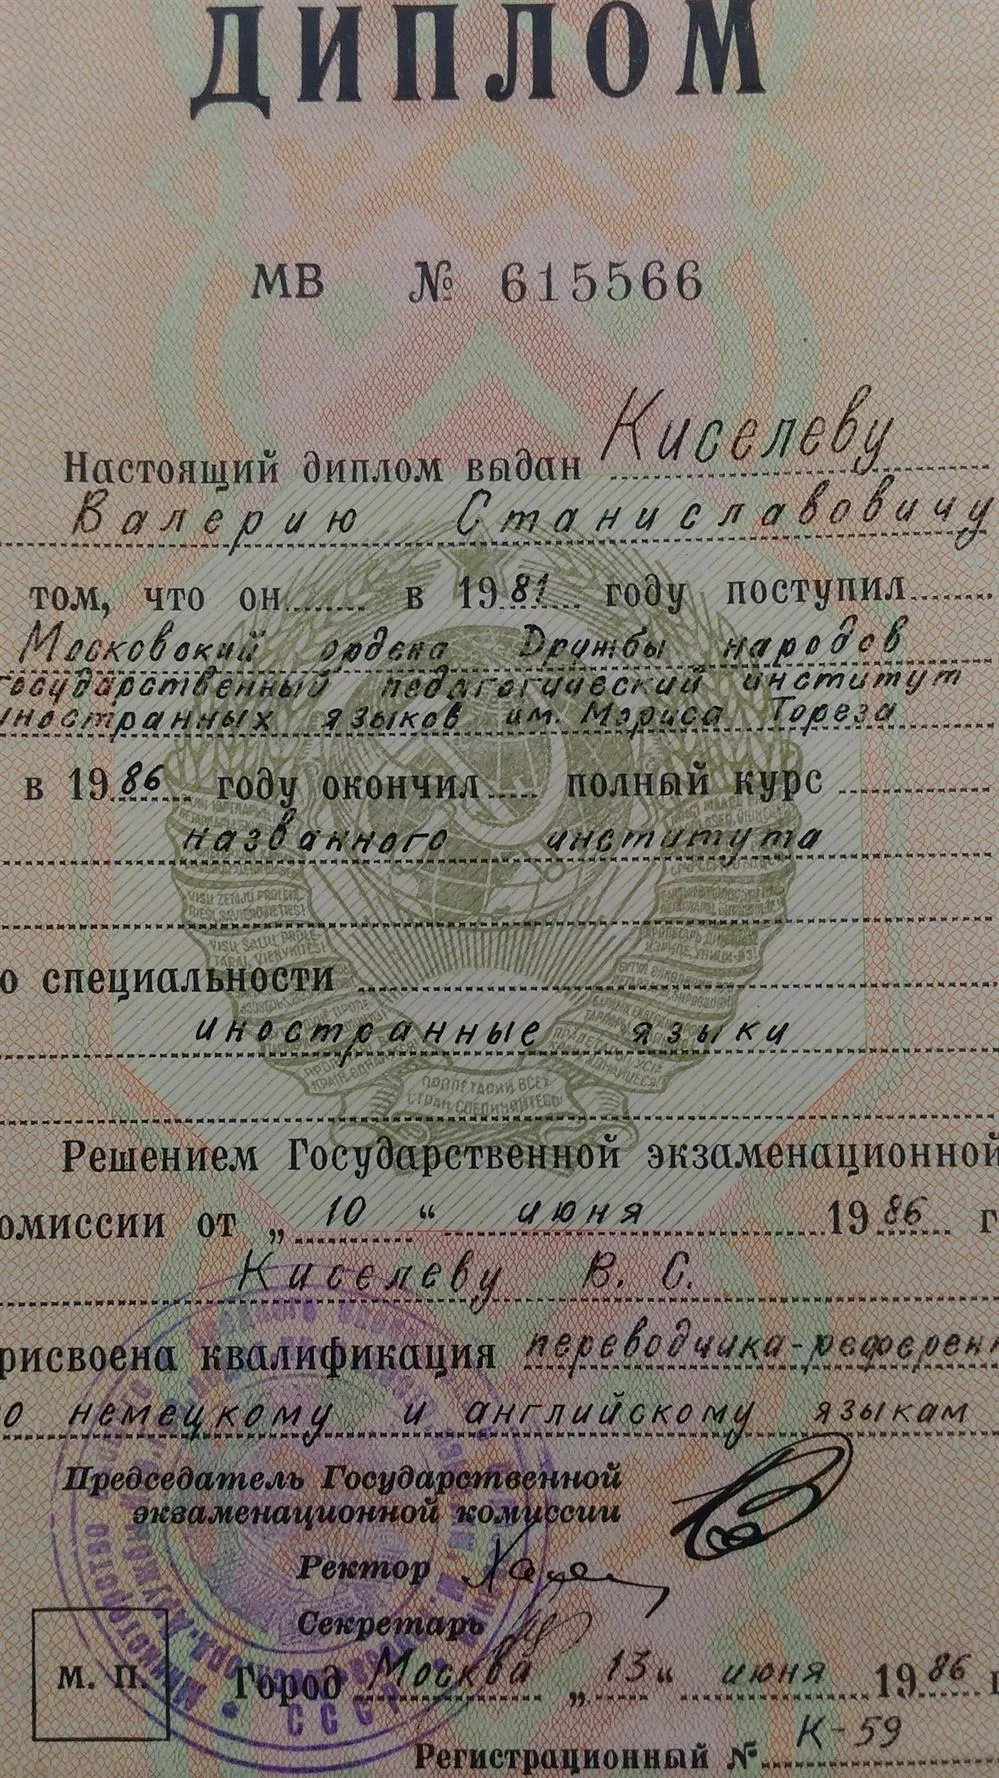 ДИПЛОМ
МВ № 615566
Настоящий диплом выдан Киселеву
Валерию Станиславовичу
том, что он в 1981 году поступил
Московский ордена Дружбы народов
государственный педагогический институт
иностранных языков им. Мориса Тореза
в 1986 году окончил полный курс
названного института
о специальности
иностранные языки
Решением Государственной экзаменационной
омиссии от „10“ июня 1986 г
Киселеву В. С.
рисвоена квалификация переводчика-референт
о немецкому и английскому языкам
Председатель Государственной
экзаменационной комиссии
Ректор
Секретарь
М. П. Город Москва „13“ июня 1986 г
Регистрационный № К-59
СССР
ПРОЛЕТАРИИ ВСЕХ
СТРАН, СОЕДИНЯЙТЕСЬ!